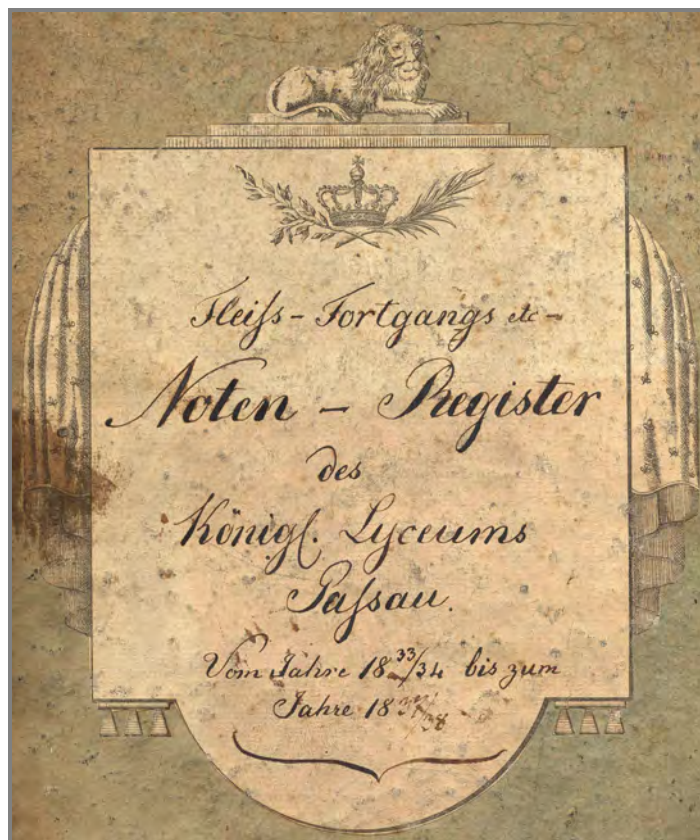 Fleiſs - Fortgangs etc -
Noten - Register
des
Königl. Lyceums
Paſsau.
Vom Jahre 18 33/34 bis zum
Jahre 18 /38